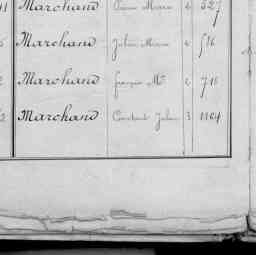 Marchand Pierre Marie 6 527
Marchand Julien Marie 6 516
Marchand françois Mie 6 716
2 Marchand Constant Julien 3 1104